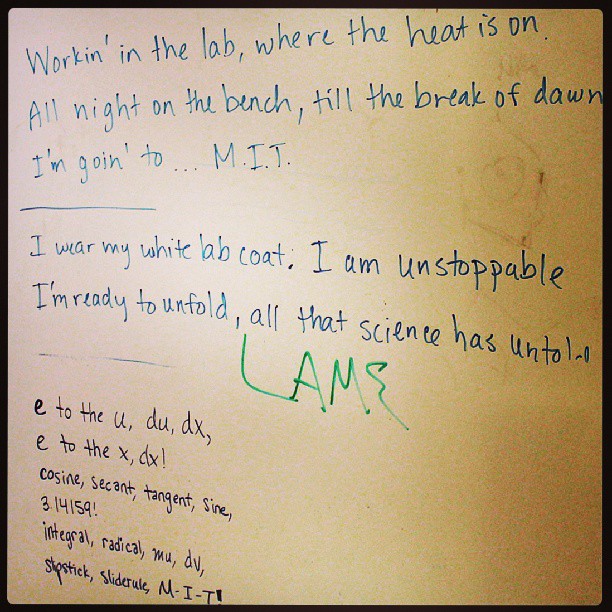 Workin' in the lab, where the heat is on.
All night on the bench, till the break of dawn
I'm goin' to ... M.I.T.
I wear my white lab coat: I am unstoppable
I'm ready to unfold, all that science has untold
LAME
e to the u, du, dx,
e to the x, dx!
cosine, secant, tangent, sine,
3.14159!
integral, radical, mu, dv,
slipstick, sliderule, M-I-T!